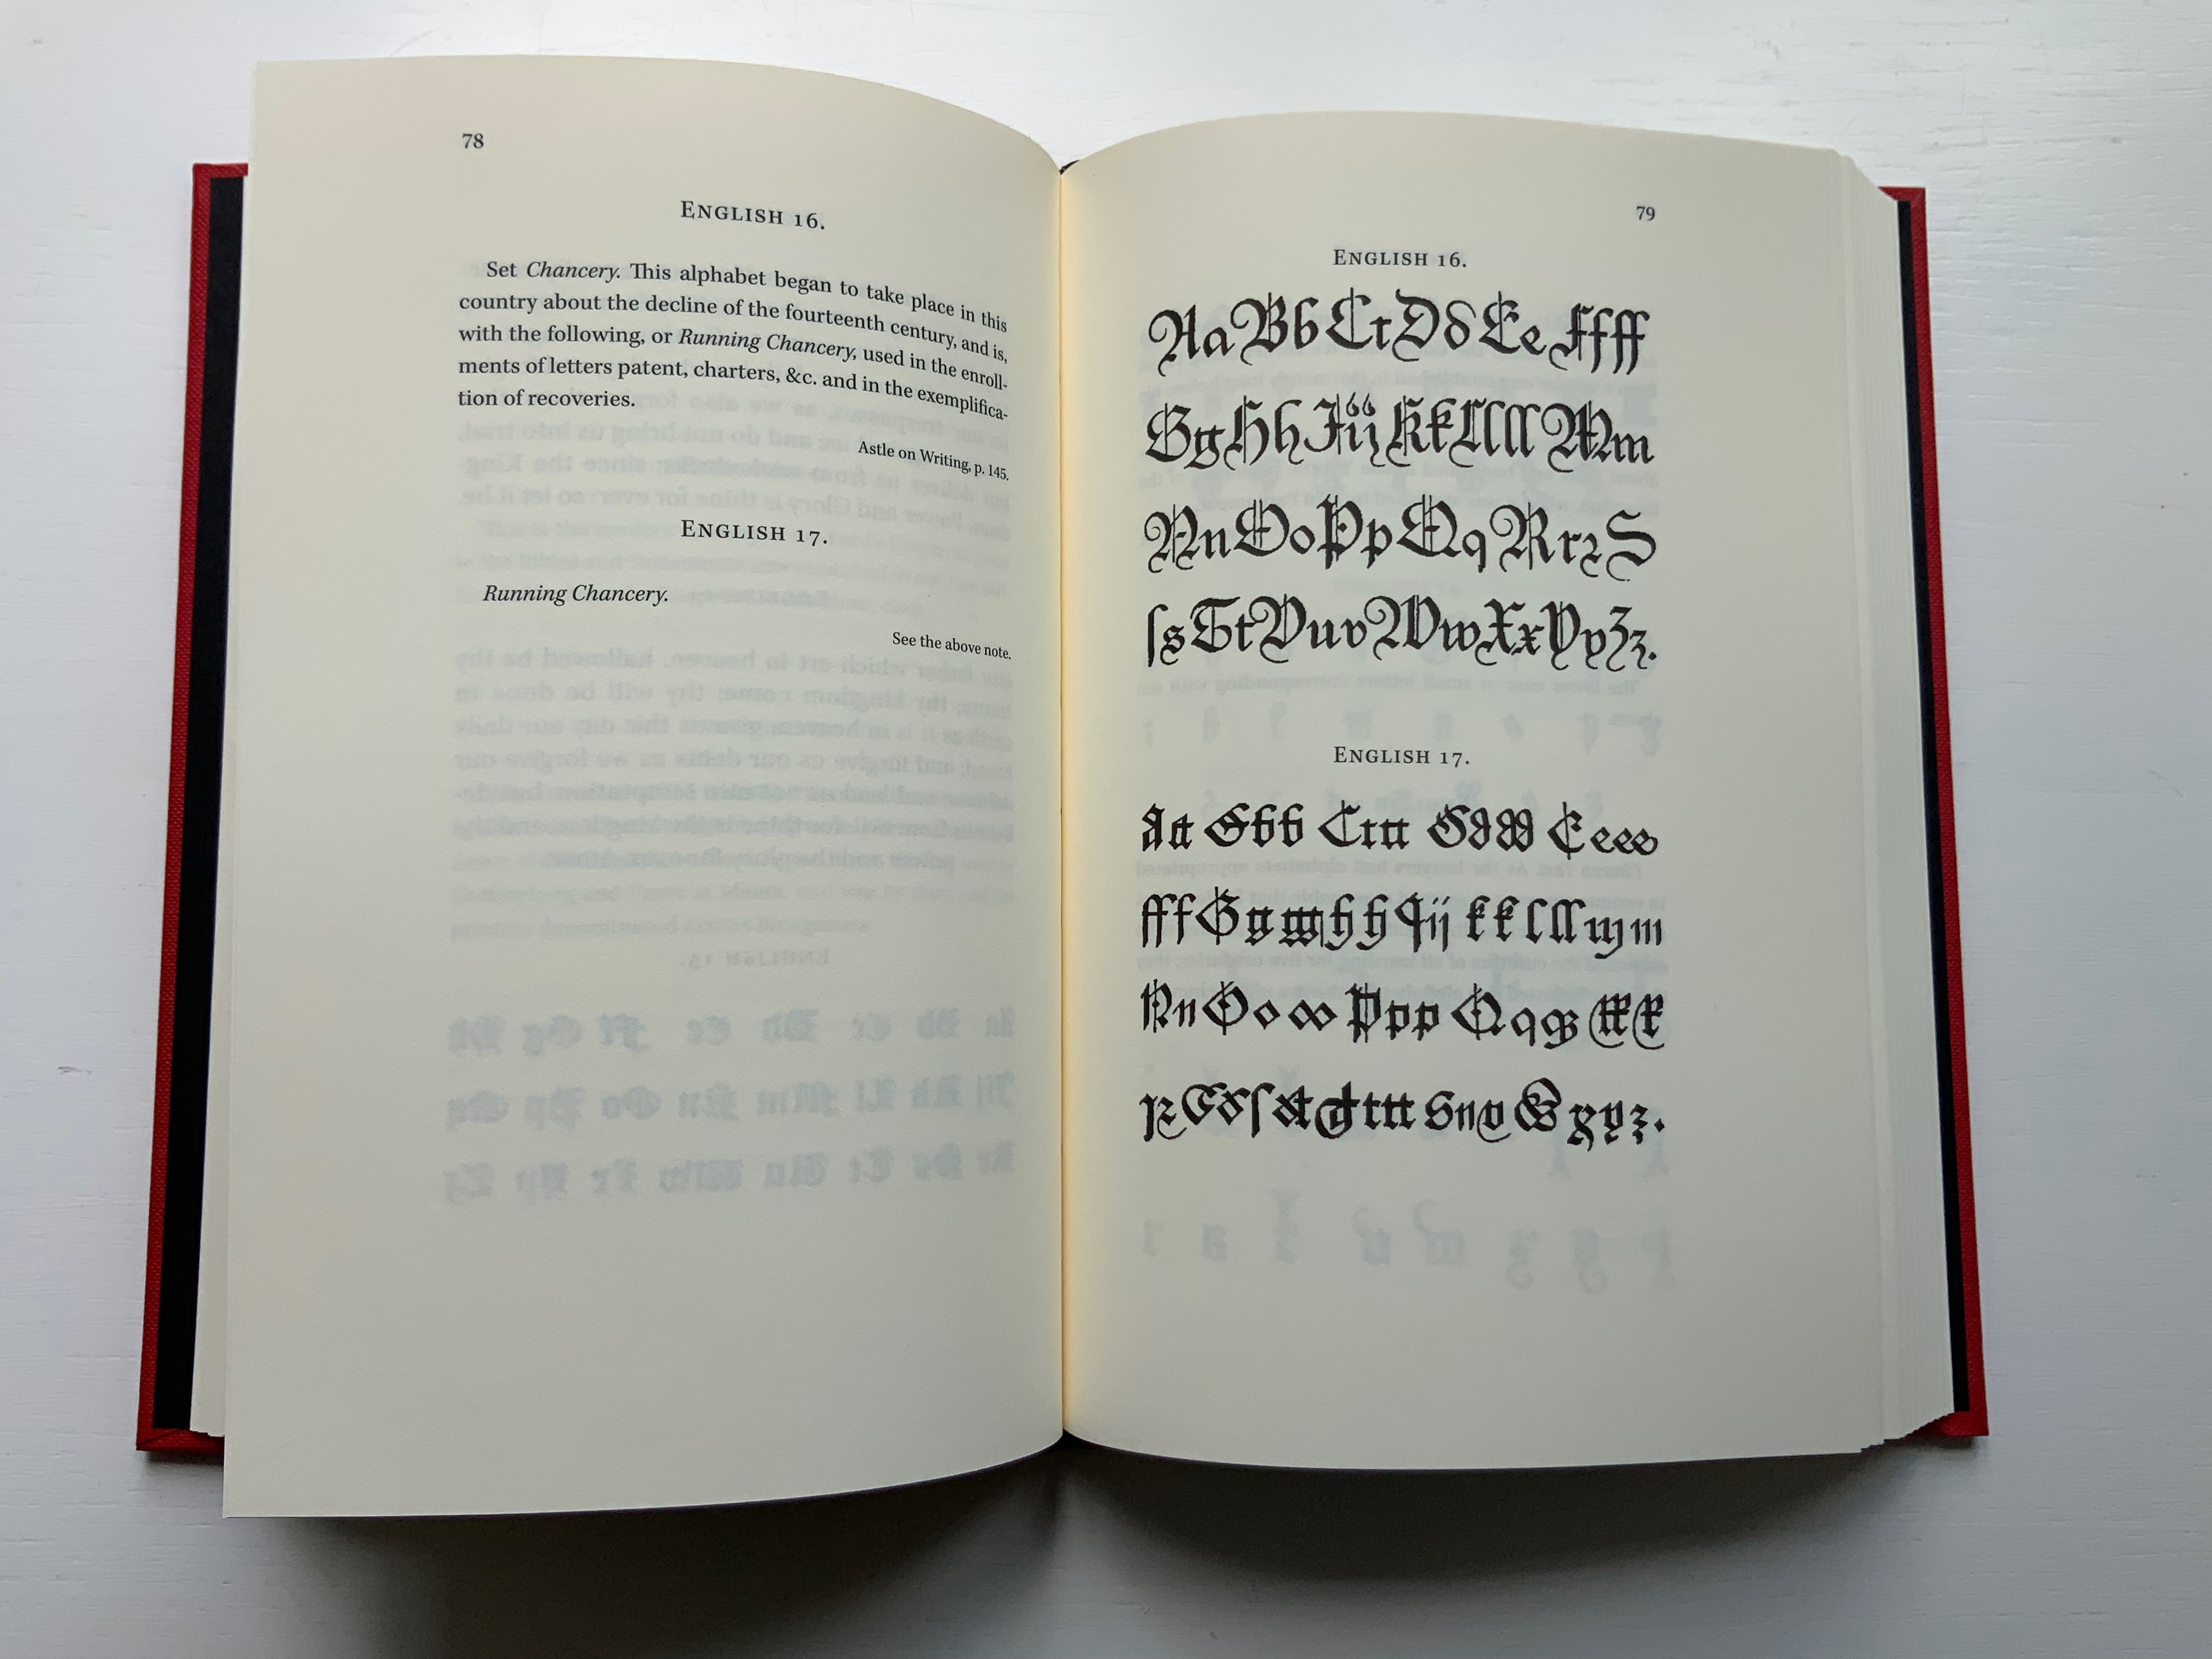 78
ENGLISH 16.
Set Chancery. This alphabet began to take place in this
country about the decline of the fourteenth century, and is,
with the following, or Running Chancery, used in the enroll-
ments of letters patent, charters, &c. and in the exemplifica-
tion of recoveries.
Astle on Writing, p. 145.
ENGLISH 17.
Running Chancery.
See the above note.
79
ENGLISH 16.
Aa Bb Cc Dd Ee Ffff
Gg Hh Iij Kk Llll Mm
Nn Oo Pp Qq Rrꝛ S
ſs Tt Vuv Ww Xx Yy Zz.
ENGLISH 17.